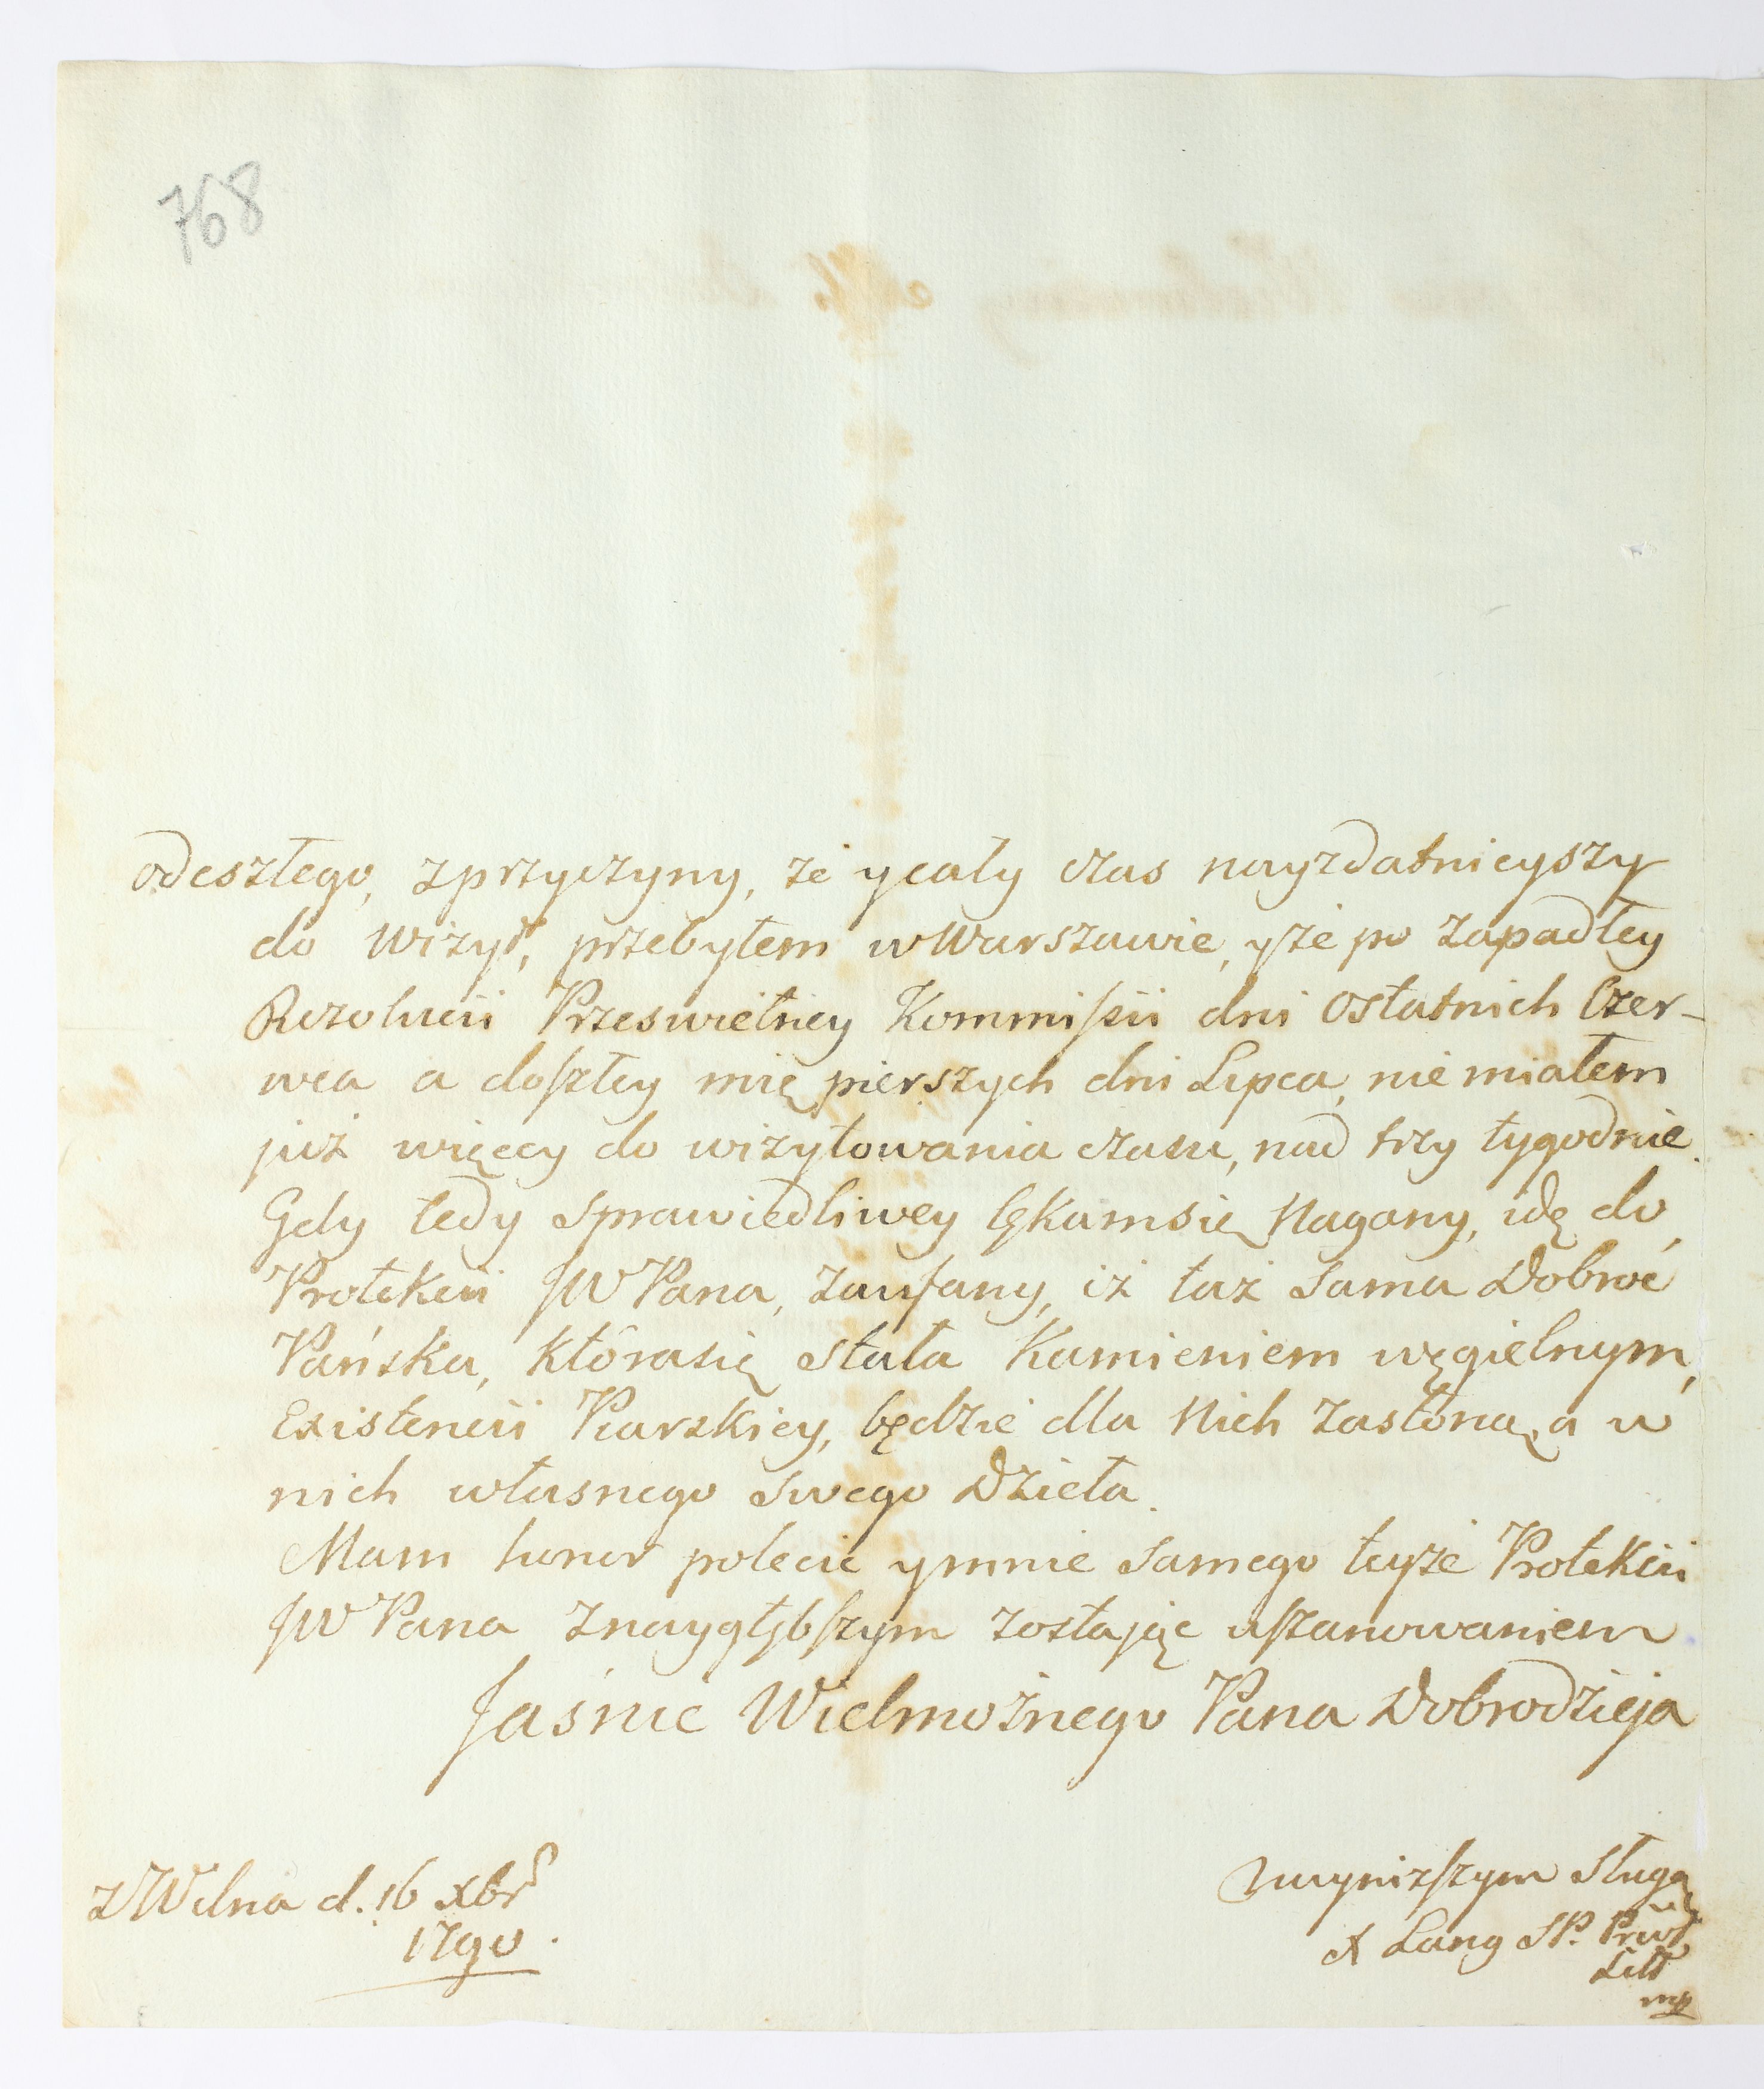 768
odeszłego, zprzyczyny, że ycały czas nayzdatnieyszy
do wizyt, przebyłem wWarszawie, yże po zapadłey
Rezolucii Prześwietney Kommissii dni ostatnich Czer-
wca a doszłey mię pierszych dni Lipca, nie miałem
już więcey do wizytowania czasu, nad trzy tygodnie.
Gdy tedy sprawiedliwey lękamsię Nagany, idę do
Protekcii JW Pana, zaufany, iż taż sama Dobroć
Pańska, którasię stała Kamieniem węgielnym,
Existencii Piarskiey, będzie dla Nich zasłoną, a w
nich własnego swego Dzieła.
Mam honor polecić ymnie samego teyże Protekcii
JW Pana znaygłębszym zostając uszanowaniem
Jaśnie Wielmożnego Pana Dobrodzieja
zWilna d. 16 Xbr
1790.
Nayniższym Sługą
X Lang SP. Prowl
Litt
mp